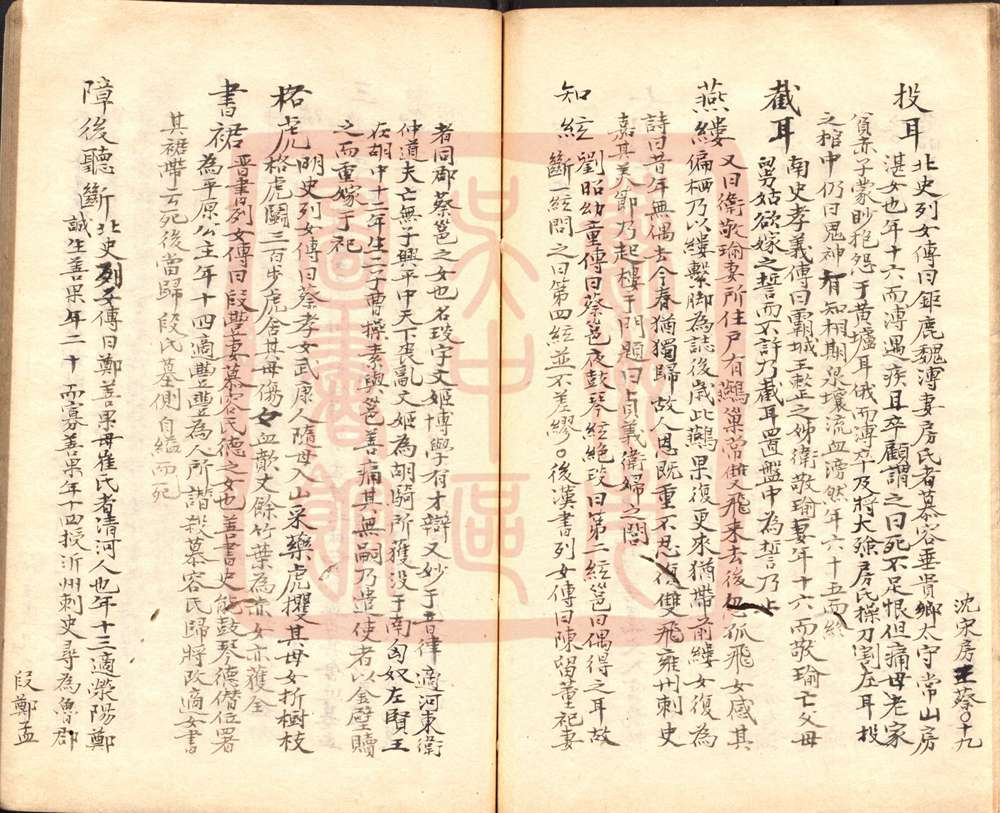 沈宋房王蔡〇十九
投耳 北史列女傳曰鉅鹿魏溥妻房氏者慕容垂貴鄉太守常山房
湛女也年十六而溥遇疾且卒顧謂之曰死不足恨但痛母老家
貧赤子蒙眇抱怨于黃壚耳俄而溥卒及將大殮房氏操刀割左耳投
之棺中仍曰鬼神有知相期泉壤流血滂然年六十五而終
截耳 南史孝義傳曰霸城王整之姊衛敬瑜妻年十六而敬瑜亡父母
舅姑欲嫁之誓而不許乃截耳置盤中為誓乃止
燕縷 又曰衛敬瑜妻所住戶有鷰巢常雙飛来去後忽孤飛女感其
偏栖乃以縷繫脚為誌後歳此鷰果復更來猶帶前縷女復為
詩曰昔年無偶去今春猶獨歸故人恩既重不忍復雙飛雍州刺史
嘉其美節乃起樓于門題曰貞義衛婦之閭
知絃 劉昭幼童傳曰蔡邕夜鼓琴絃絶琰曰第二絃邕曰偶得之耳故
斷一絃問之曰第四絃並不差繆〇後漢書列女傳曰陳留董祀妻
者同郡蔡邕之女也名琰字文姬博學有才辯又妙于音律適河東衛
仲道夫亡無子興平中天下喪亂文姬為胡騎所獲没于南匈奴左賢王
在胡中十二年生二子曹操素與邕善痛其無嗣乃遣使者以金璧贖
之而重嫁于祀
格虎 明史列女傳曰蔡孝女武康人隨母入山采藥虎攫其母女折樹枝
格虎闘三百步虎舍其母傷女血歕丈餘竹葉為赤女亦獲全
書裙 晉書列女傳曰段豐妻慕容氏德之女也善書史能鼓琴德僭位署
為平原公主年十四適豐豐為人所譖殺慕容氏歸將改適女書
其裙帶云死後當歸段氏墓側自縊而死
障後聽斷 北史列女傳曰鄭善果母崔氏者清河人也年十三適滎陽鄭
誠生善果年二十而寡善果年十四授沂州刺史尋為魯郡
段鄭孟